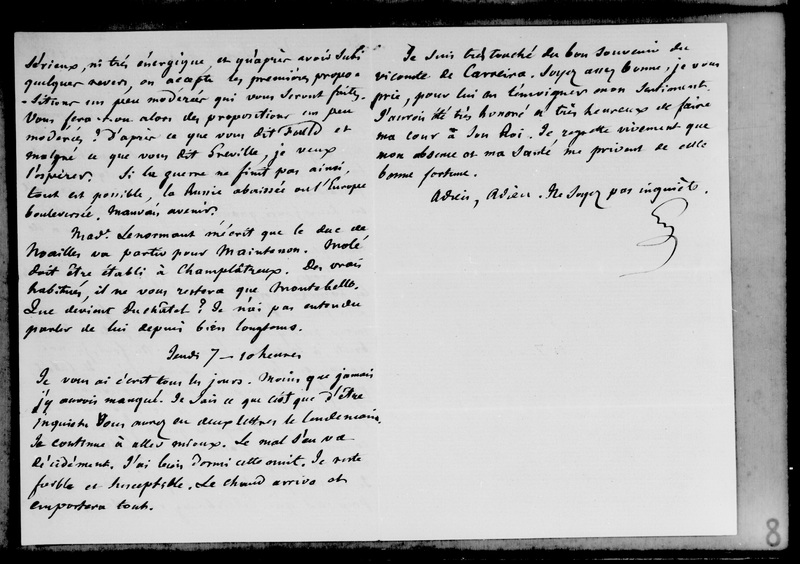 sérieux, ni très énergique, et qu'après avoir subi
quelques revers, on accepte les premières propo-
-sitions un peu modérées qui vous seront faites.
Vous fera-t-on alors des propositions un peu
modérées ? D'après ce que vous dit Fould et
malgré ce que vous dit Greville, je veux
l'espérer. Si la guerre ne finit pas ainsi,
tout est possible, la Russie abaissée ou l'Europe
bouleversée. Mauvais avenir.
Made. Lenormant m'écrit que le duc de
Noailles va partir pour Maintenon. Molé
doit être établi à Champlâtreux. Des vrais
habitués, il ne vous restera que Montebello.
Que devient Duchâtel ? Je n'ai pas entendu
parler de lui depuis bien longtems.
Jeudi 7 - 10 heures
Je vous ai écrit tous les jours. Moins que jamais
j'y aurois manqué. Je sais ce que c'est que d'être
inquiet. Vous aurez eu deux lettres le lendemain.
Je continue à aller mieux. Le mal s'en va
décidément. J'ai bien dormi cette nuit. Je reste
foible et susceptible. Le chaud arrive et
emportera tout.
Je suis très touché du bon souvenir du
vicomte de Carreira. Soyez assez bonne, je vous
prie, pour lui en témoigner mon sentiment.
J'aurois été très honoré et très heureux de faire
ma cour à son Roi. Je regrette vivement que
mon absence et ma santé me privent de cette
bonne fortune.
Adieu, Adieu. Ne soyez pas inquiète.
8